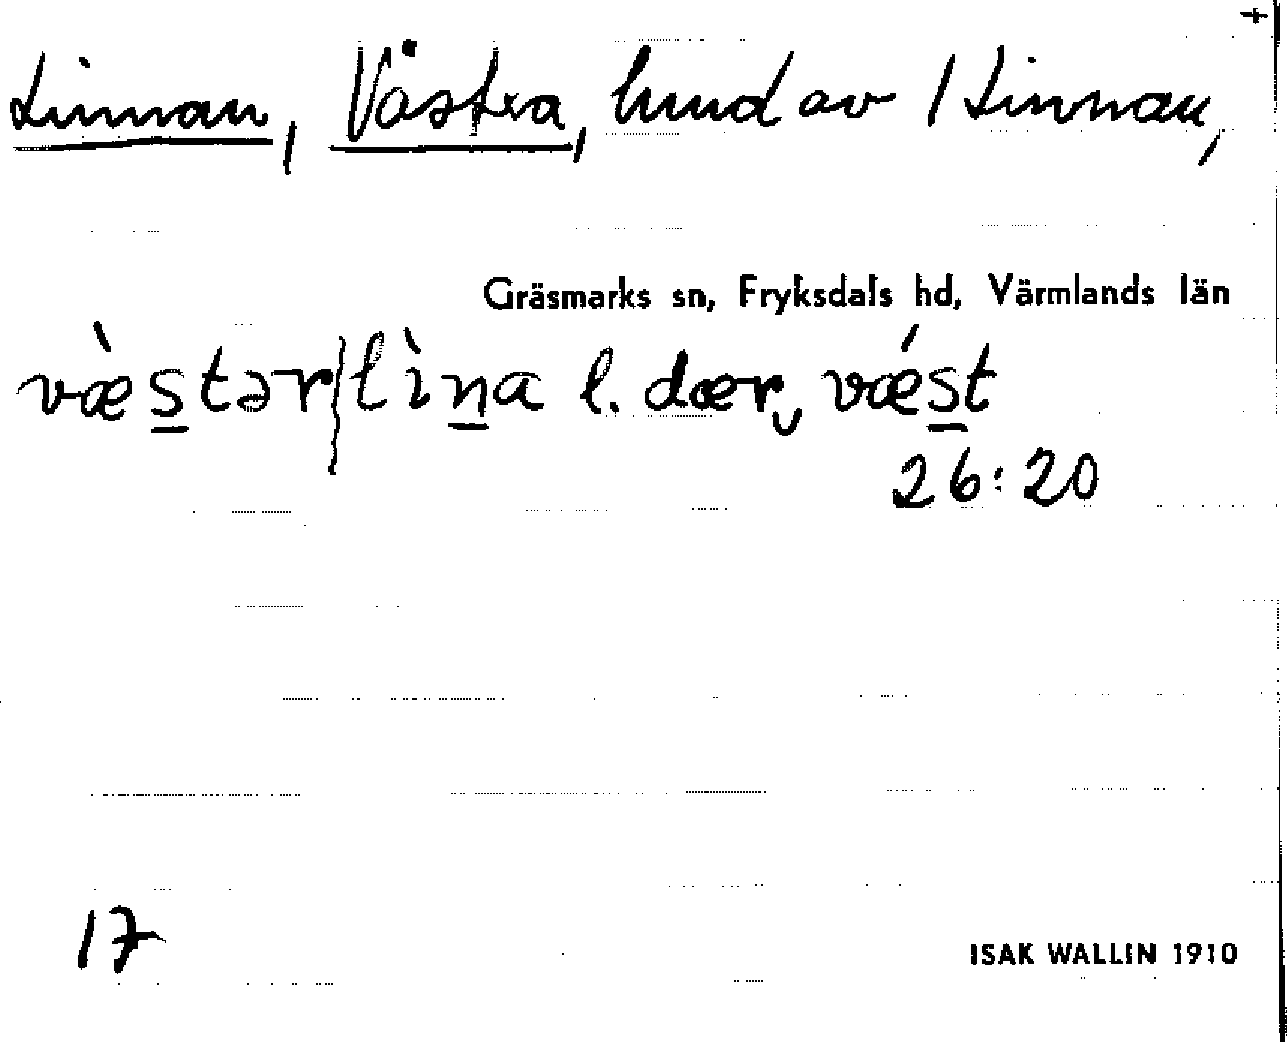 +
Linnan, Västra, hmd av 1 Linnan,
Gräsmarks sn, Fryksdals hd, Värmlands län
væ̀s̲tər⸾lìn̲a l. dær‿vǽs̲t
26:20
17
ISAK WALLIN 1910